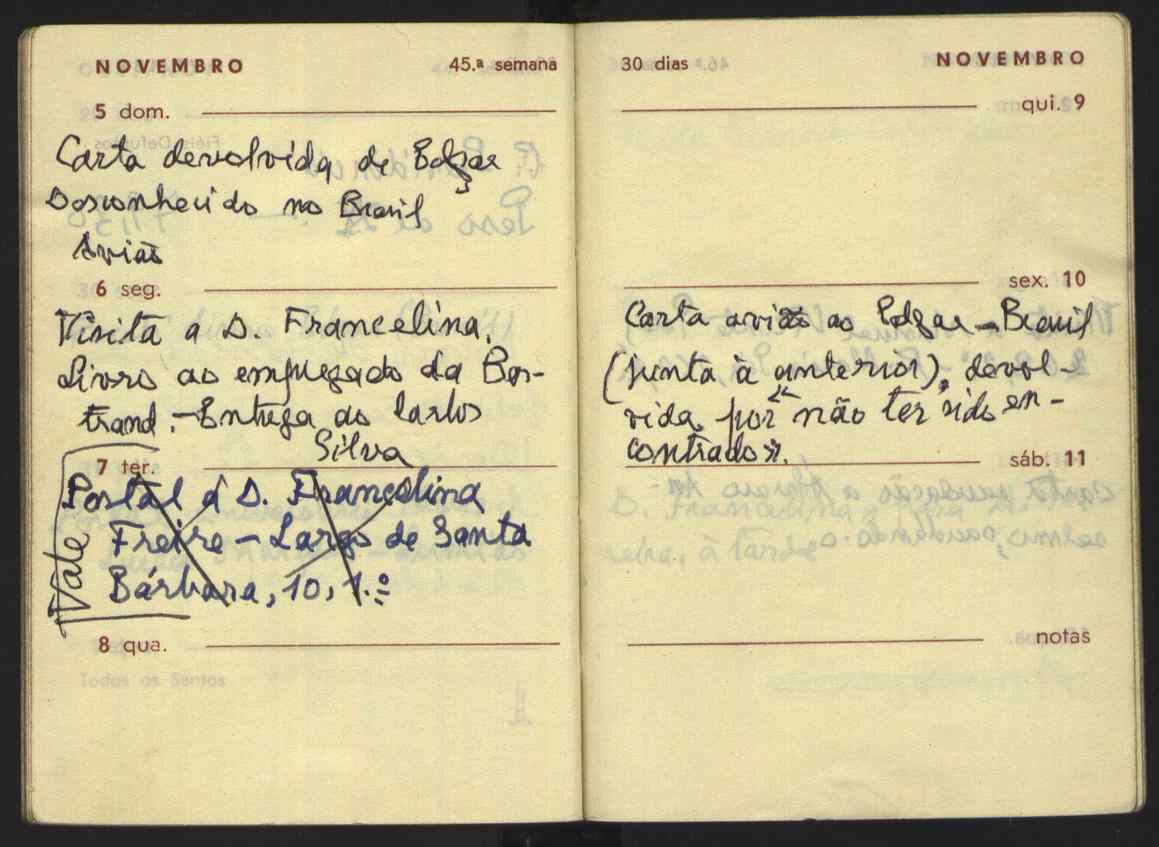 NOVEMBRO 45.ª semana
5 dom.
Carta devolvida de Edgar
Desconhecido no Brasil
Avião
6 seg.
Visita a D. Francelina.
Livro ao empregado da Ber-
trand. – Entrega ao Carlos
Silva
7 ter.
Postal á D. Francelina
Freire – Largo de Santa
Bárbara, 10, 1.º
Vale
8 qua.
Todos os Santos
30 dias NOVEMBRO
qui. 9
sex. 10
Carta avião ao Edgar – Brasil
(junta à anterior), devol-
vida, por «não ter sido en-
contrado».
sáb. 11
notas